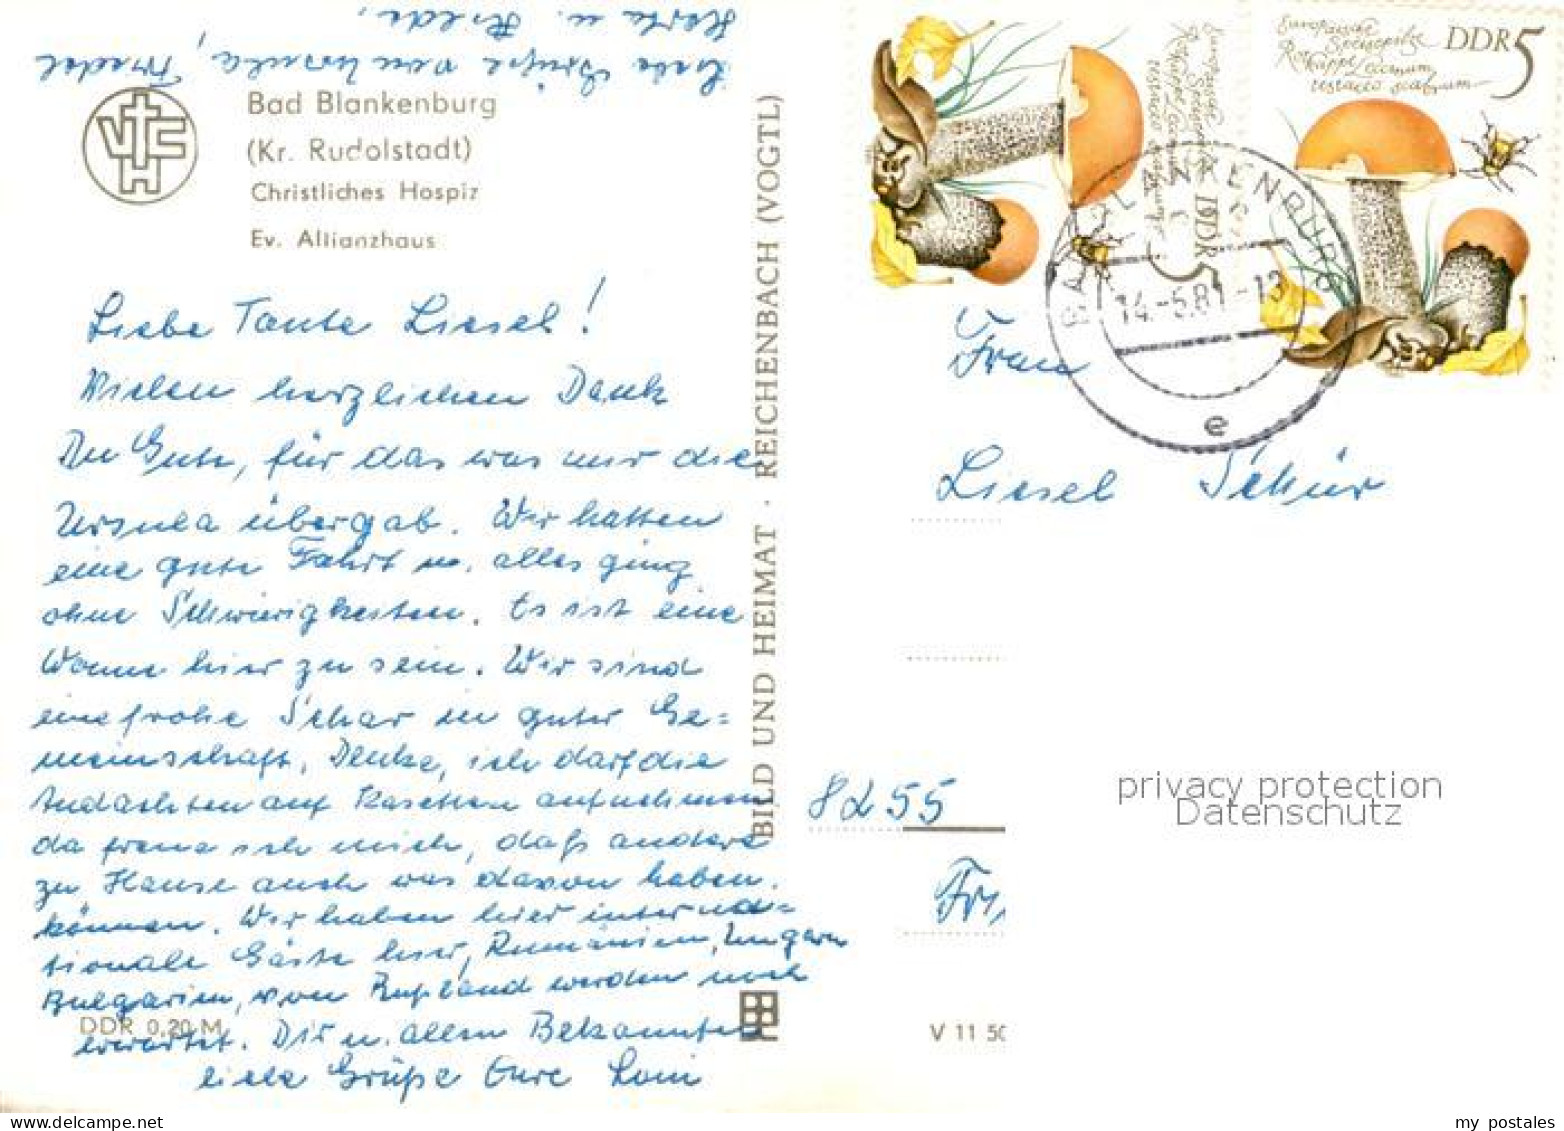 Liebe Grüße von Ursula, Friedel
Herta u. Hilde,
VCH
Bad Blankenburg
(Kr. Rudolstadt)
Christliches Hospiz
Ev. Allianzhaus
Liebe Tante Liesel!
Vielen herzlichen Dank
Du Gute, für das was mir die
Ursula übergab. Wir hatten
eine gute Fahrt u. alles ging
ohne Schwierigkeiten. Es ist eine
Wonne hier zu sein. Wir sind
eine frohe Schar in guter Ge=
meinschaft. Denke, ich darf die
Andachten auf Kasetten aufnehmen
da freue ich mich, daß andere
zu Hause auch was davon haben
können. Wir haben hier interna=
tionale Gäste hier, Rumänien, Ungarn
Bulgarien, von Rußland werden noch
erwartet. Dir u. allen Bekannten
liebe Grüße Eure Loni
DDR 0,20 M
BILD UND HEIMAT · REICHENBACH (VOGTL)
V 11 50
Europäische
Speisepilze
Rotkappe Leccinum
testaceo scabrum
DDR 5
Europäische
Speisepilze
Rotkappe Leccinum
testaceo scabrum
DDR 5
BAD BLANKENBURG
14.-5.81-13
e
Frau
Liesel Schür
8255
privacy protection
Datenschutz
my postales